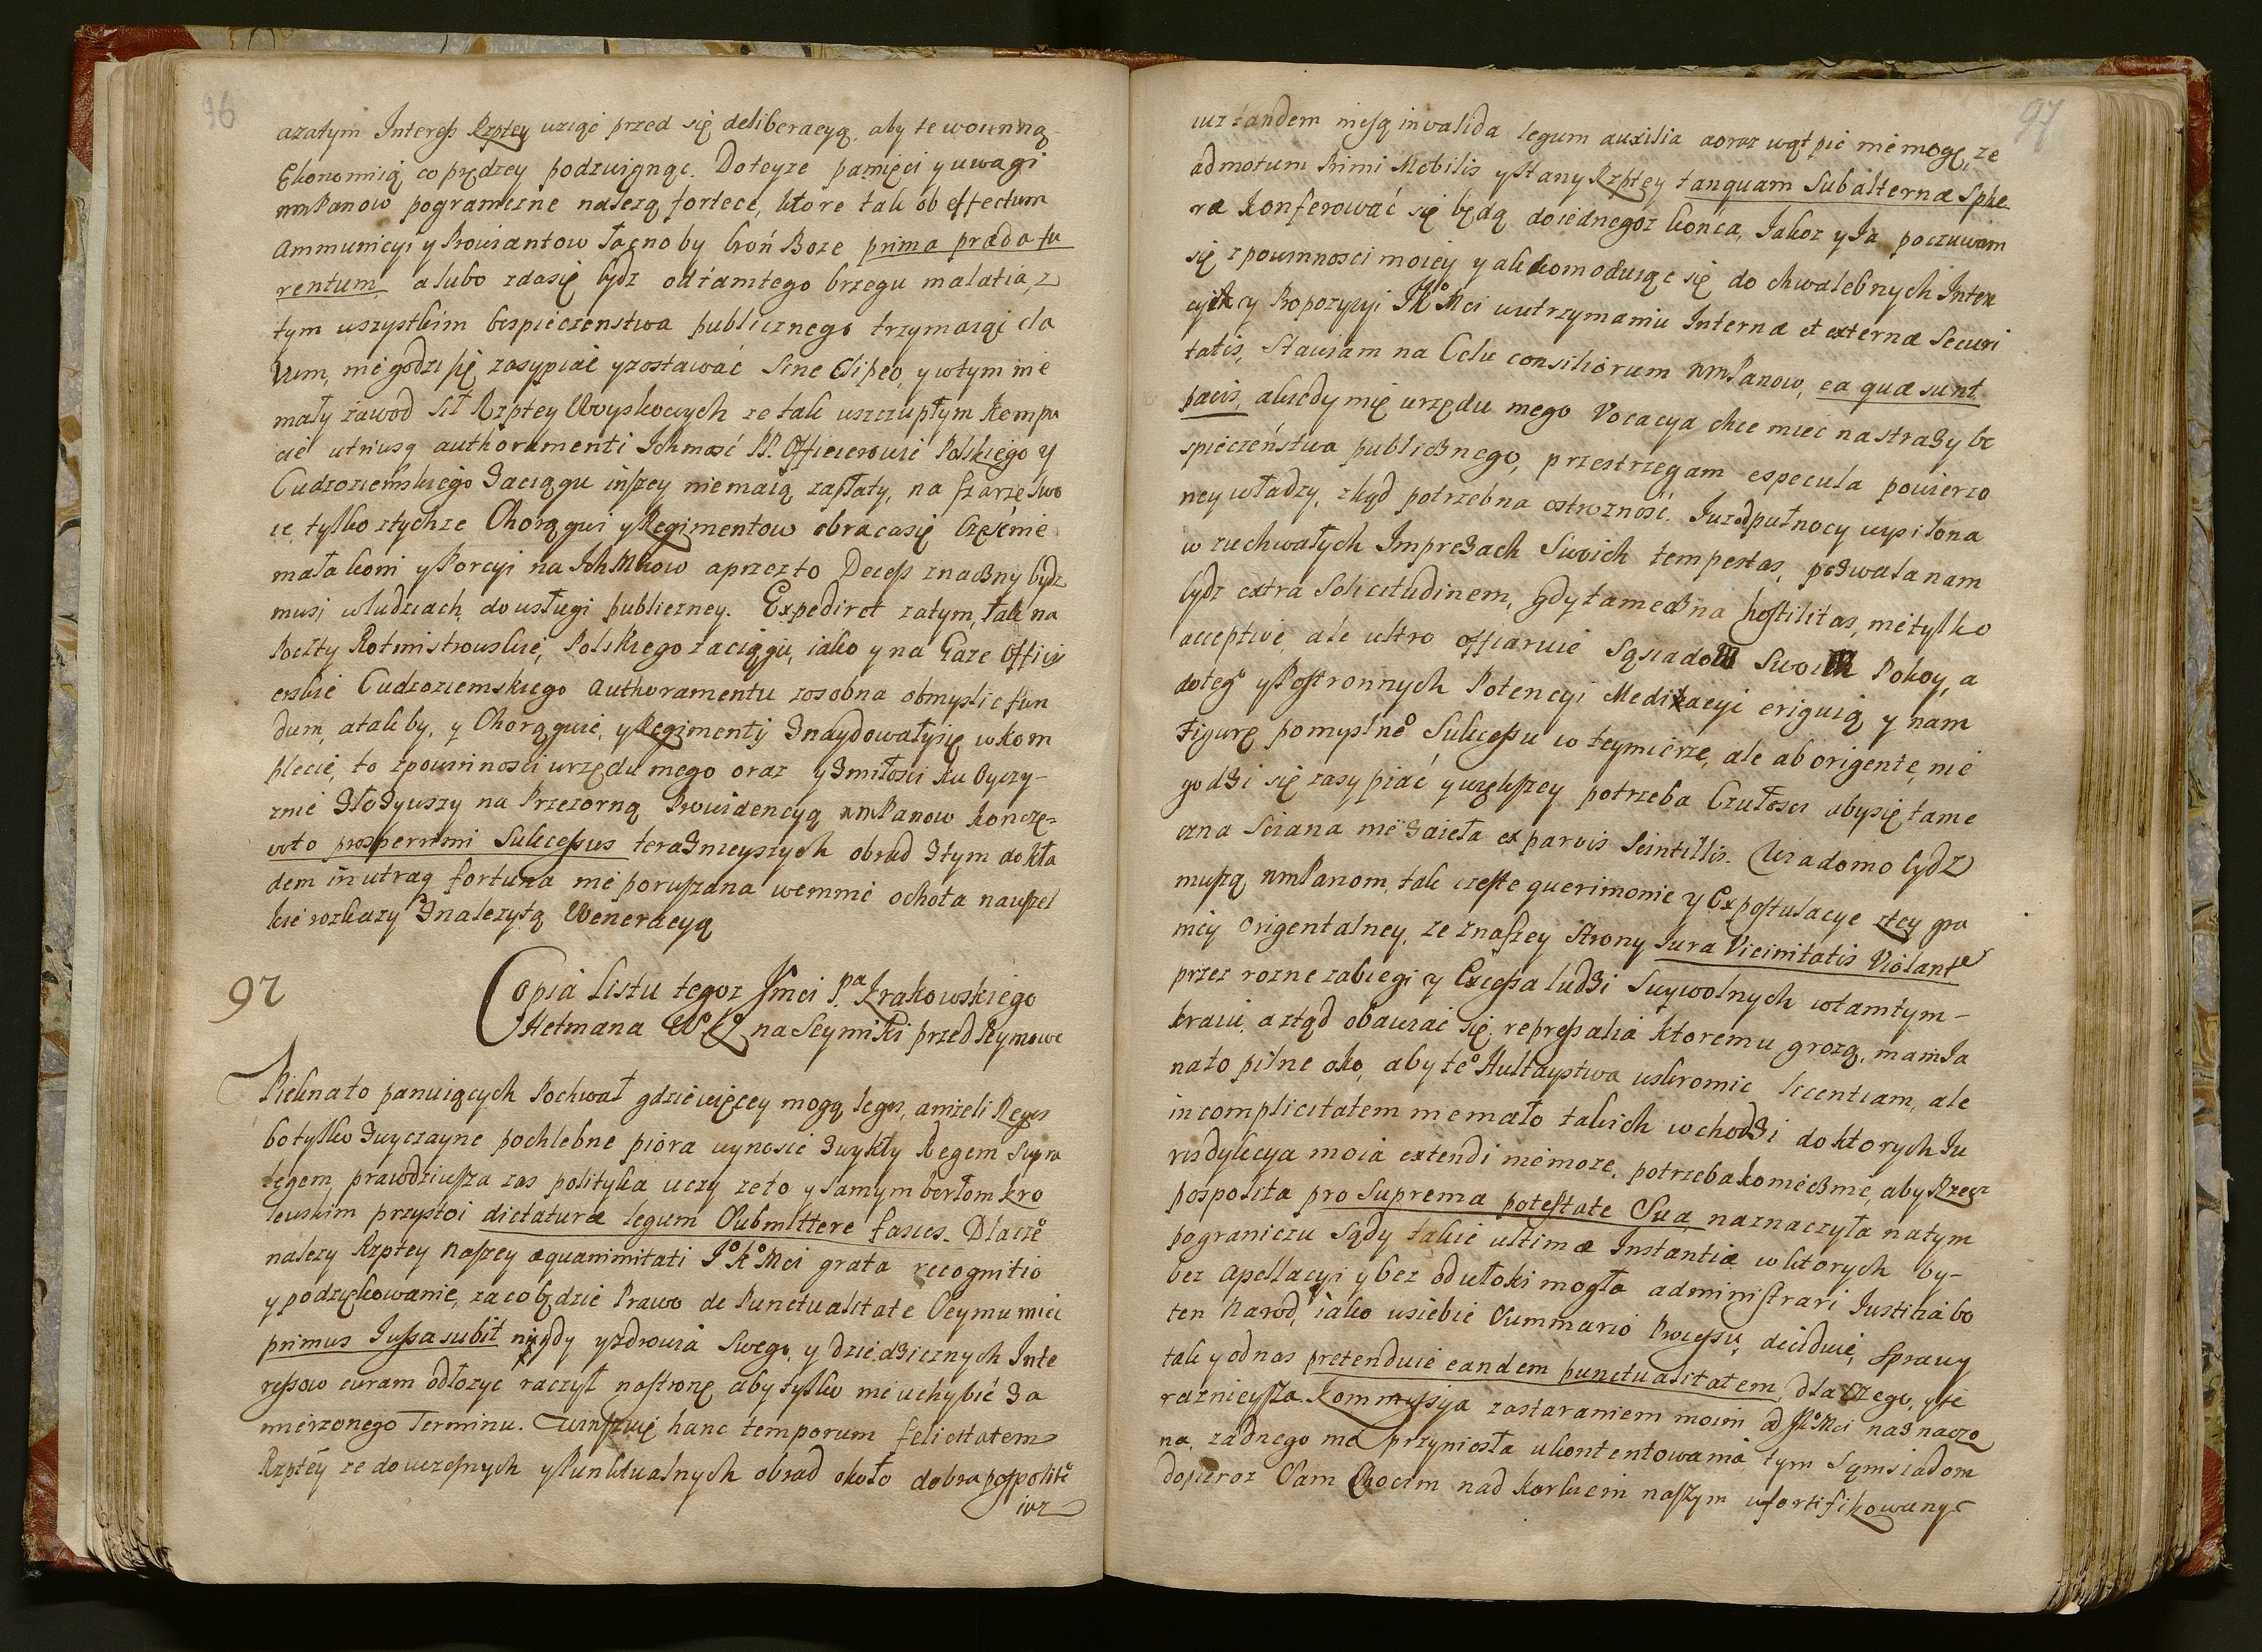 96
azatym Interess Rzptey wziąć przed się deliberacyą, aby te wounną
Ekonomią co prędzey podzwignąć. Doteyże pamięci y uwagi
wmPanow pograniczne należą fortece, ktore tak ob effectum
Ammunicyi y Prowiantow łacno by broń Boże prima præda fu
rentum, alubo zdasię bydz od tamtego brzegu malatia, z
tym wszystkim bespieczenstwa publicznego trzymaiąc cla
vum, niegodzi się zasypiać y zostawać Sine Clipeo, y wtym nie
mały zawod Sił Rzptey Woyskowych ze tak uszczupłym kompu
cie utriusq authoramenti Ichmość PP. Officierowie Polskiego y
Cudzoziemskiego Zaciągu inszey niemaią zapłaty, na szarże swo
ie, tylko ztychże Chorągwi y Regimentow obracasię Częśćnie
mała koni y Porcyi na IchMciow aprzezto Decess znaczny bydz
musi wludziach, do usługi publiczney. Expediret zatym, tak na
Poczty Rotmistrowskie, Polskiego zaciągu, iako y na Gaże Offici
erskie Cudzoziemskiego Authoramentu zosobna obmyslic fun
dum, atak by, y Chorągwie, y Regimenty Znaydowałysię wkom
plecie, to zpowinnosci urzędu mego oraz y Zmiłosci ku Oyczy-
znie Złożywszy na Przezorną Prowidencyą wmPanow kończę=
voto prosperrimi Successus teraznieyszych obrad Ztym dokła
dem in utraq fortuna nie poruszana wemnie ochota nawszel
kie rozkazy Znależytą Weneracyą
97
Copia Listu tegoz Jmci Pa Krakowskiego
Hetmana W. K. na Seymiki przed Seymowe
Piekna to panuiących Pochwał gdzie więcey mogą leges, anizeli Reges
bo tylko Zwyczayne pochlebne pióra wynosić Zwykły Regem Supra
legem, prawdziwsza zas polityka uczy ze to y Samym berłom kro
lewskim przystoi dictaturæ legum Submittere fasces. Dlaczeo
nalezy Rzptey naszey æquanimitati Jo Ko Mci grata recognitio
y podziękowanie, zaco będzie Prawo de Punctualitate Seymu mieć
primus Jussa subit nigdy y zdrowia Swego, y dziedzicznych Inte
ressow curam odłożyć raczył nastronę aby tylko nie uchybić Za
mierzonego Terminu. Winszuię hanc temporum felicitatem
Rzptey ze do wczesnych y Punktualnych obrad około dobra pospolite
iuz
97
iuz tandem niesą invalida legum auxilia aoraz wątpić niemogę, ze
ad motum Primi Mobilis y Stany Rzptey tanquam Subalternæ Sphe
ræ Konferować się będą doiednegoz końca, Jakoz y Ja poczuwam
się z powinnosci moiey y akkomoduiąc się do chwalebnych Inten
cyi y Propozycyi JKo Mci wutrzymaniu Internæ et externæ Securi
tatis, Stawiam na Celu consiliorum wmPanow, ea quæ sunt
pacis, akiedy mię urzędu mego Vocacya chce mieć na straży be
spieczeństwa publicznego, przestrzegam e specula powierzo
ney władzy, zkąd potrzebna ostrożność. Juz od pułnocy wysilona
w zuchwałych Imprezach Swoich tempestas, pozwala nam
bydz extra Solicitudinem, gdy tameczna hostilitas, nie tylko
acceptuie, ale ultro offiaruie Sąsiadom Swoim Pokoy, a
do tego y Postronnych Potencyi Mediacyi eriguią y nam
Figurę pomyslneo Sukcessu w teymierze, ale ab origente, nie
godzi się zasypiać y większey potrzeba Czułosci abysię tame
czna Sciana nie Zaieła ex parvis Scintillis. Wiadomo bydz
muszą wmPanom, tak częste querimonie y Expostulacye ztey gra
nicy Origentalney, ze znaszey Strony Jura Vicinitatis Violantr
przez rozne zabiegi y Excessa ludzi Swywolnych wtamtym-
kraiu, a ztąd obawiać się repressalia ktoremu grozą, mam Ja
nato pilne oko, aby teo Hultaystwa uskromic licentiam, ale
in complicitatem niemało takich wchodzi doktorych Ju
risdykcya moia extendi niemoze, potrzeba koniecznie, aby Rzecz
pospolita pro Suprema potestate Sua naznaczyła natym
pograniczu Sądy takie ultimæ Instantiæ w ktorych by-
bez apellacyi y bez odwłoki mogła administrari Justitia bo
ten Narod, iako usiebie Summario Processu, deciduie, Sprawy
tak y odnas pretenduie eandem punctualitatem, dlaczego, yte
raznieysza Kommissya zastaraniem moim od JKo Mci naznaczo
na, zadnego nie przyniosła ukontentowania tym Sąmsiadom
dopieroz Sam Chocim nad karkiem naszym ufortifikowany